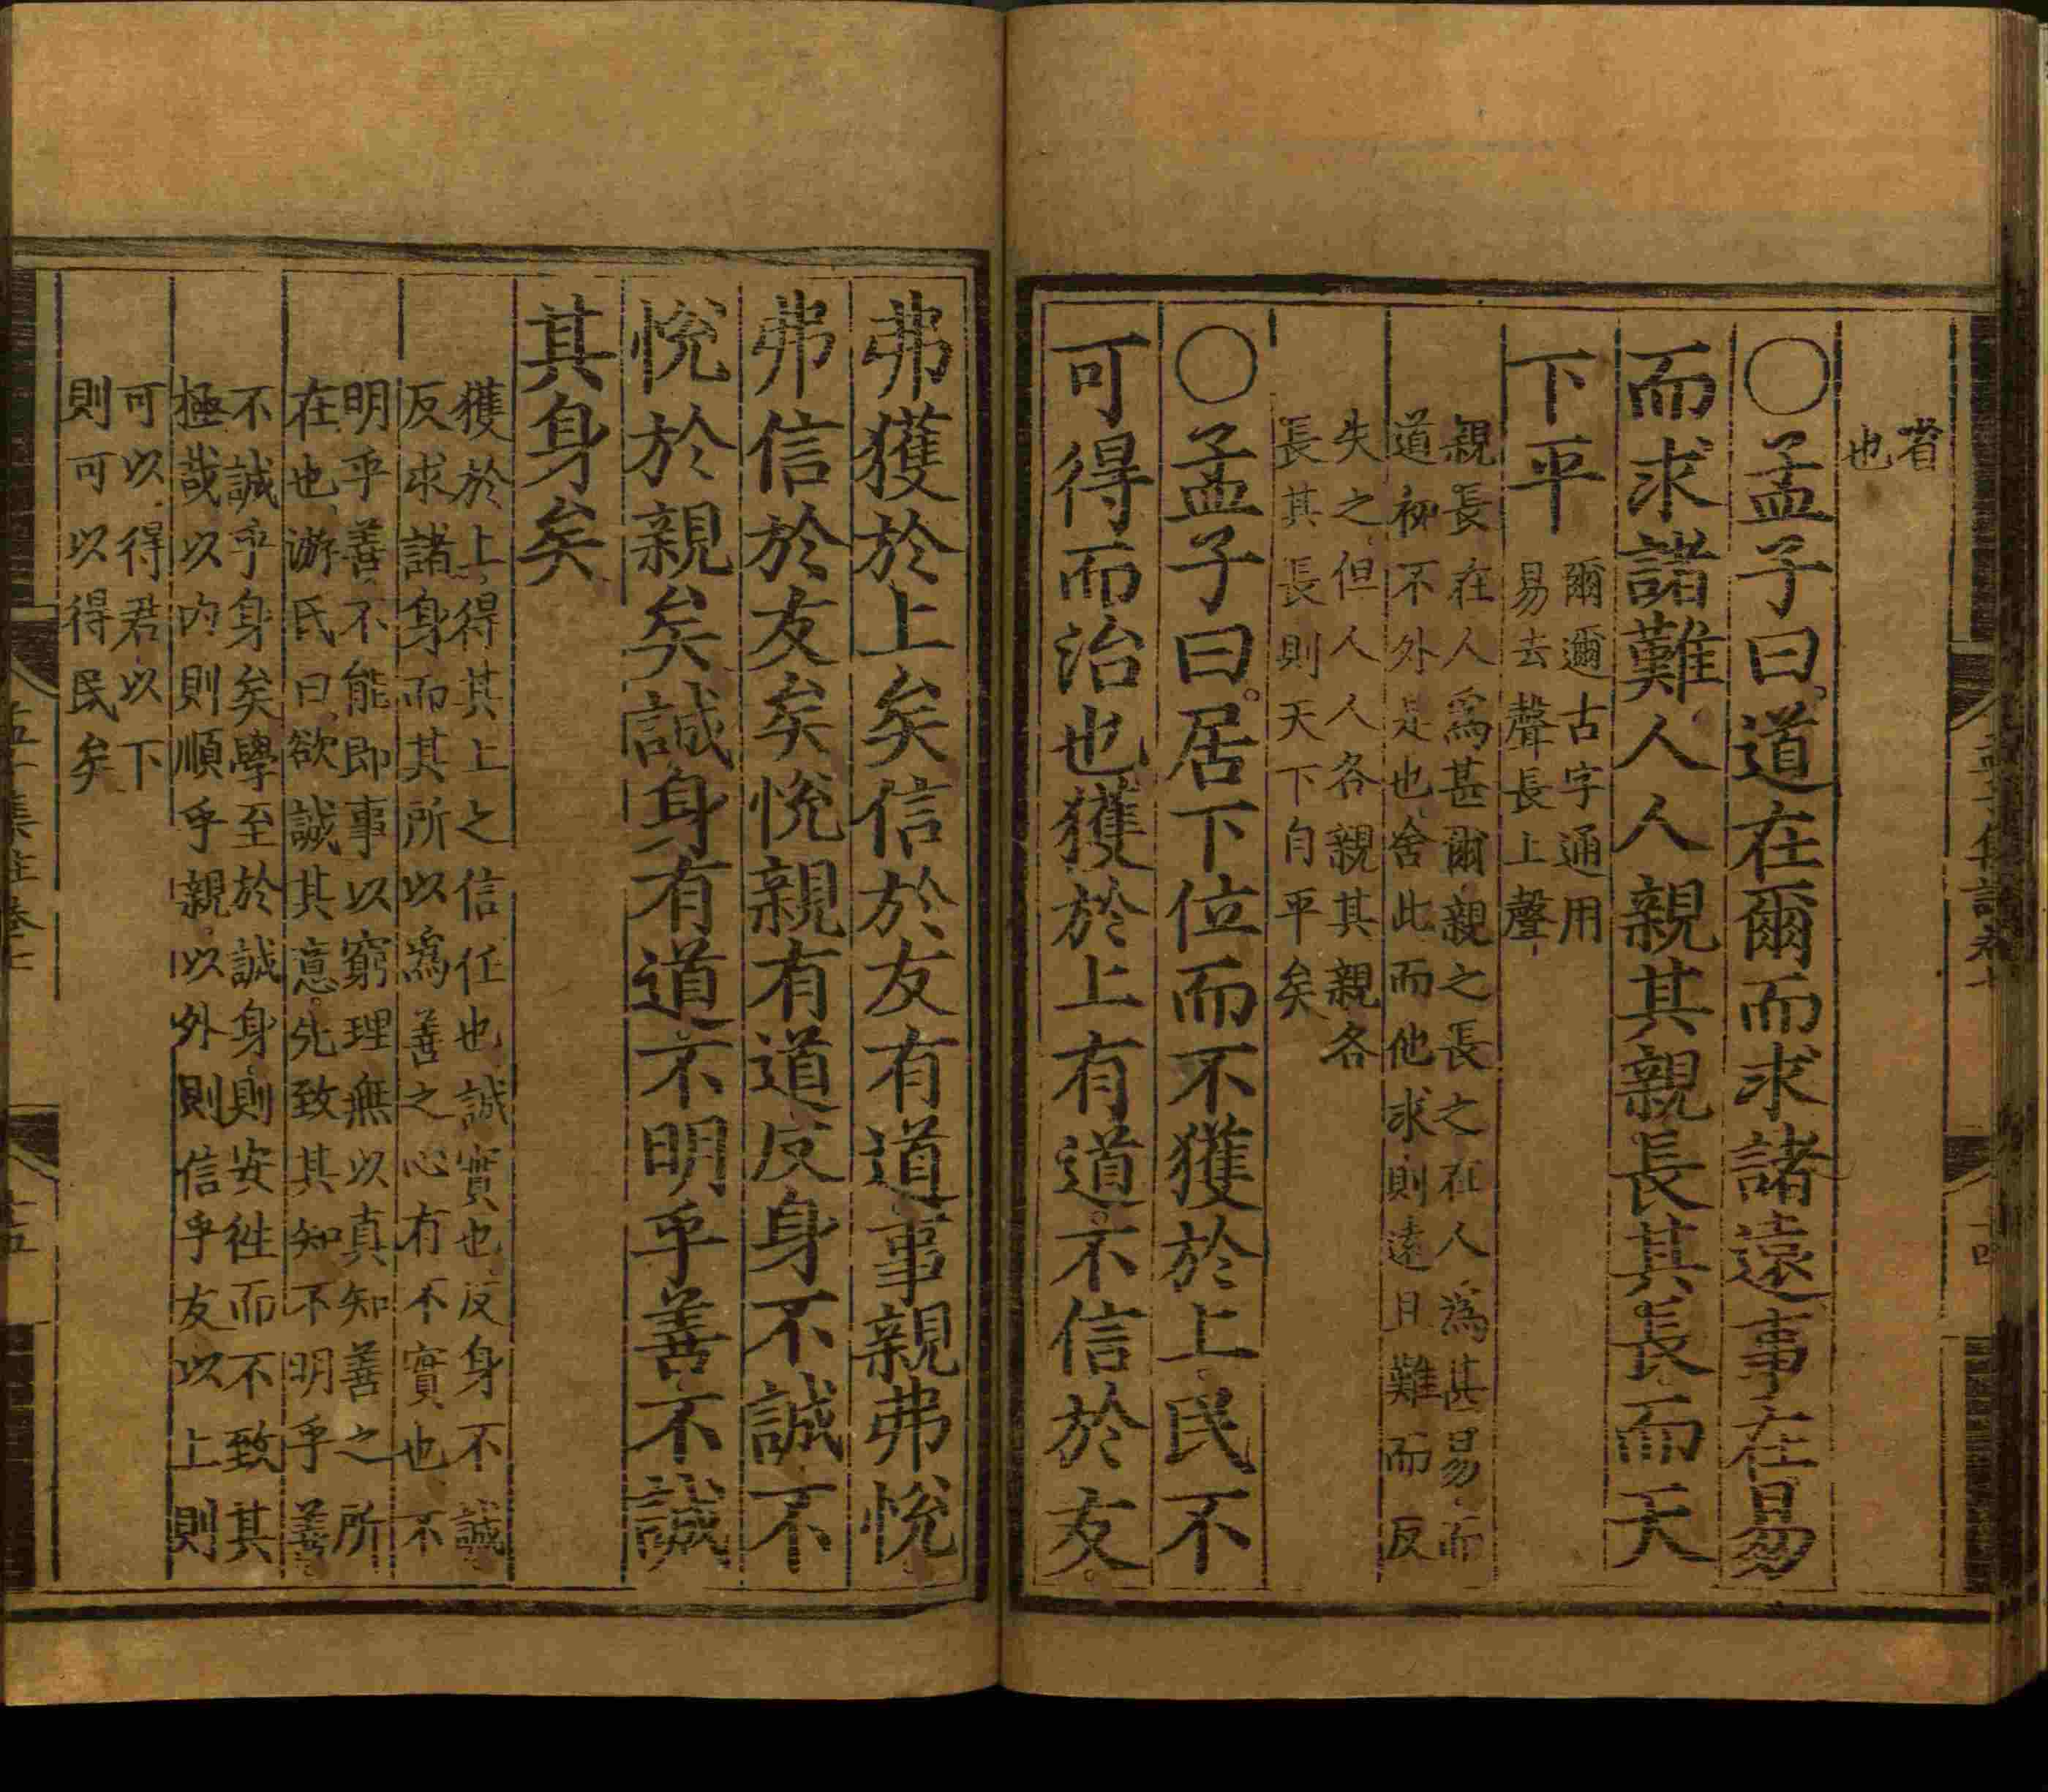 者
也
○孟子曰道在爾而求諸遠事在易
而求諸難人人親其親長其長而天
下平
爾邇古字通用
易去聲長上聲
親長在人爲甚爾親之長之在人爲甚易而
道初不外是也舍此而他求則遠且難而反
失之但人人各親其親各
長其長則天下自平矣
○孟子曰居下位而不獲於上民不
可得而治也獲於上有道不信於友
弗獲於上矣信於友有道事親弗悅
弗信於友矣悅親有道反身不誠不
悅於親矣誠身有道不明乎善不誠
其身矣
獲於上得其上之信任也誠實也反身不誠
反求諸身而其所以爲善之心有不實也不
明乎善不能即事以窮理無以真知善之所
在也游氏曰欲誠其意先致其知不明乎善
不誠乎身矣學至於誠身則安往而不致其
極哉以內則順乎親以外則信乎友以上則
可以得君以下
則可以得民矣